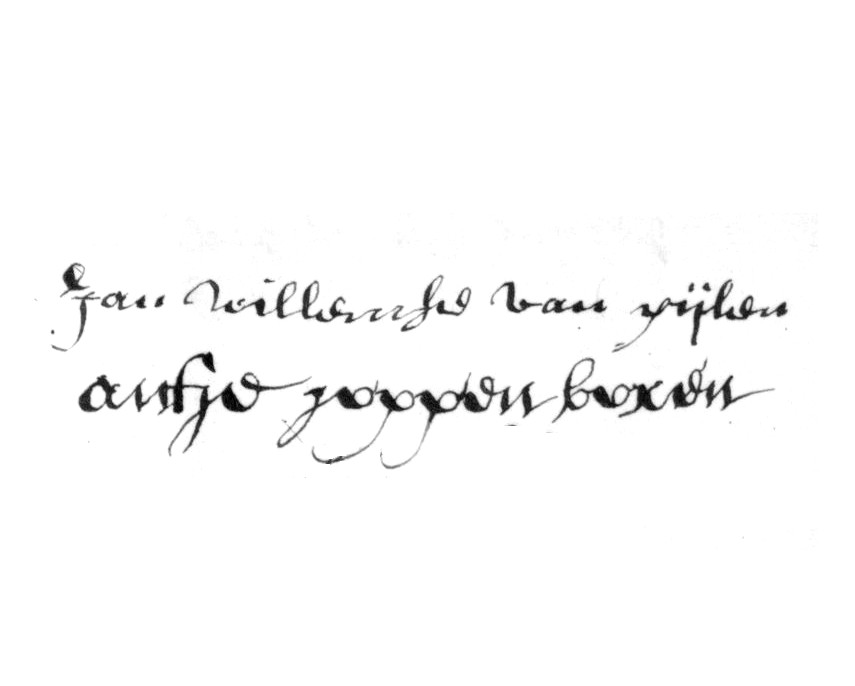 Jan willemse van pijlen
antje joppen boxen